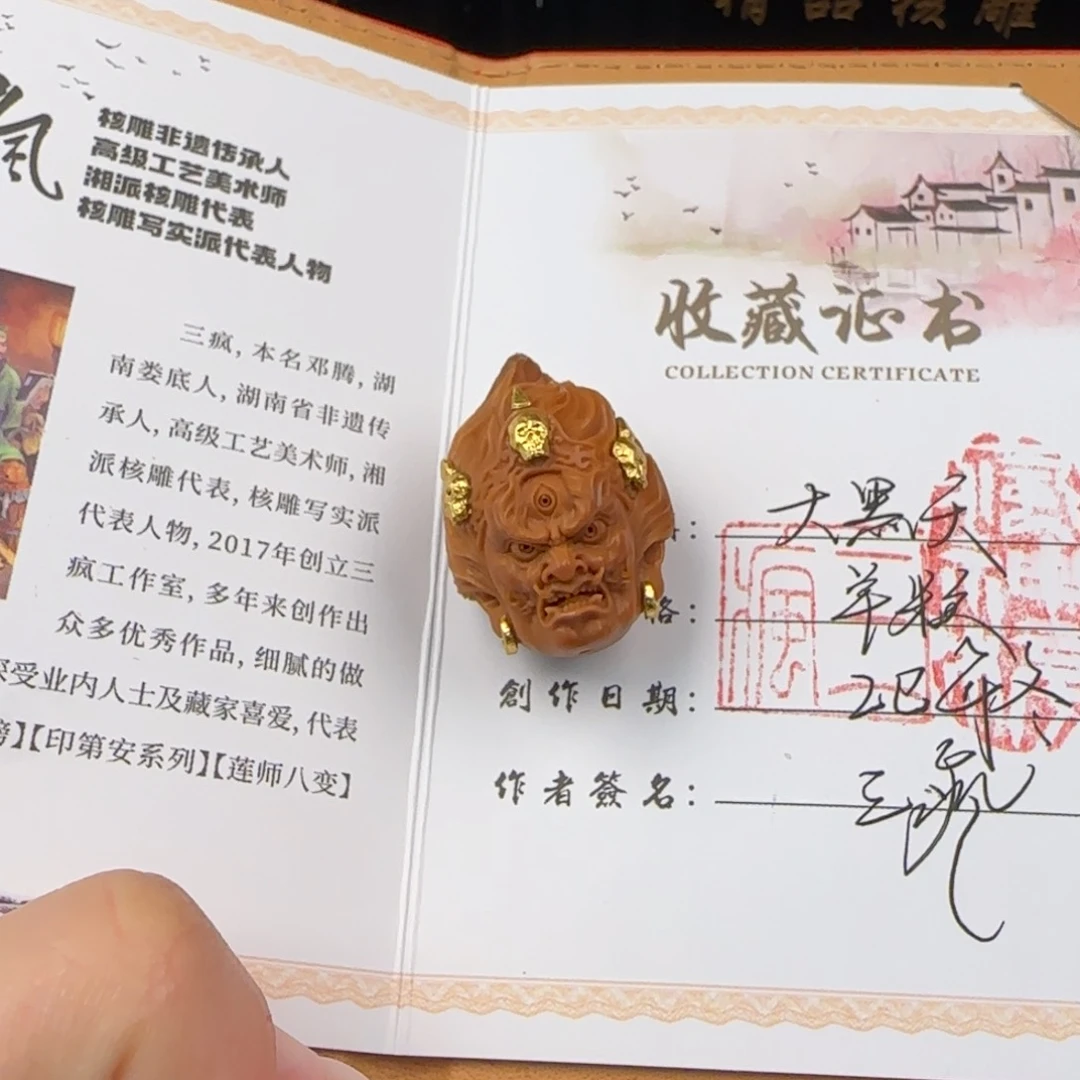 精品核雕
核雕非遗传承人
高级工艺美术师
湘派核雕代表
核雕写实派代表人物
三疯,本名邓腾,湖
南娄底人,湖南省非遗传
承人,高级工艺美术师,湘
派核雕代表,核雕写实派
代表人物,2017年创立三
疯工作室,多年来创作出
众多优秀作品,细腻的做
深受业内人士及藏家喜爱,代表
】【印第安系列】【莲师八变】
收藏证书
COLLECTION CERTIFICATE
大黑天
格:
創作日期: 乙巳年冬
作者簽名: 三疯